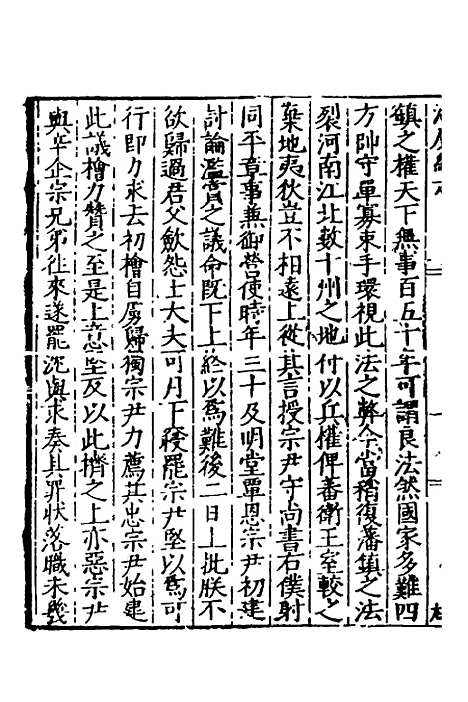 鎮之權天下無事百五十年可謂良法然國家多難四
方帥守單寡束手環視此法之弊今當稍復藩鎮之法
裂河南江北數十州之地付以兵權俾蕃衛王室較之
棄地夷狄豈不相遠上從其言授宗尹守尚書右僕射
同平章事兼御營使時年三十及明堂覃恩宗尹初建
討論濫賞之議命既下上終以爲難後二日上批朕不
欲歸過君父歛怨士大夫可日下寢罷宗尹堅以爲可
行即力求去初檜自虜歸獨宗尹力薦其忠宗尹始建
此議檜力贊之至是上意堅反以此擠之上亦惡宗尹
與辛企宗兄弟往來遂罷沈與求奏其罪狀落職未幾